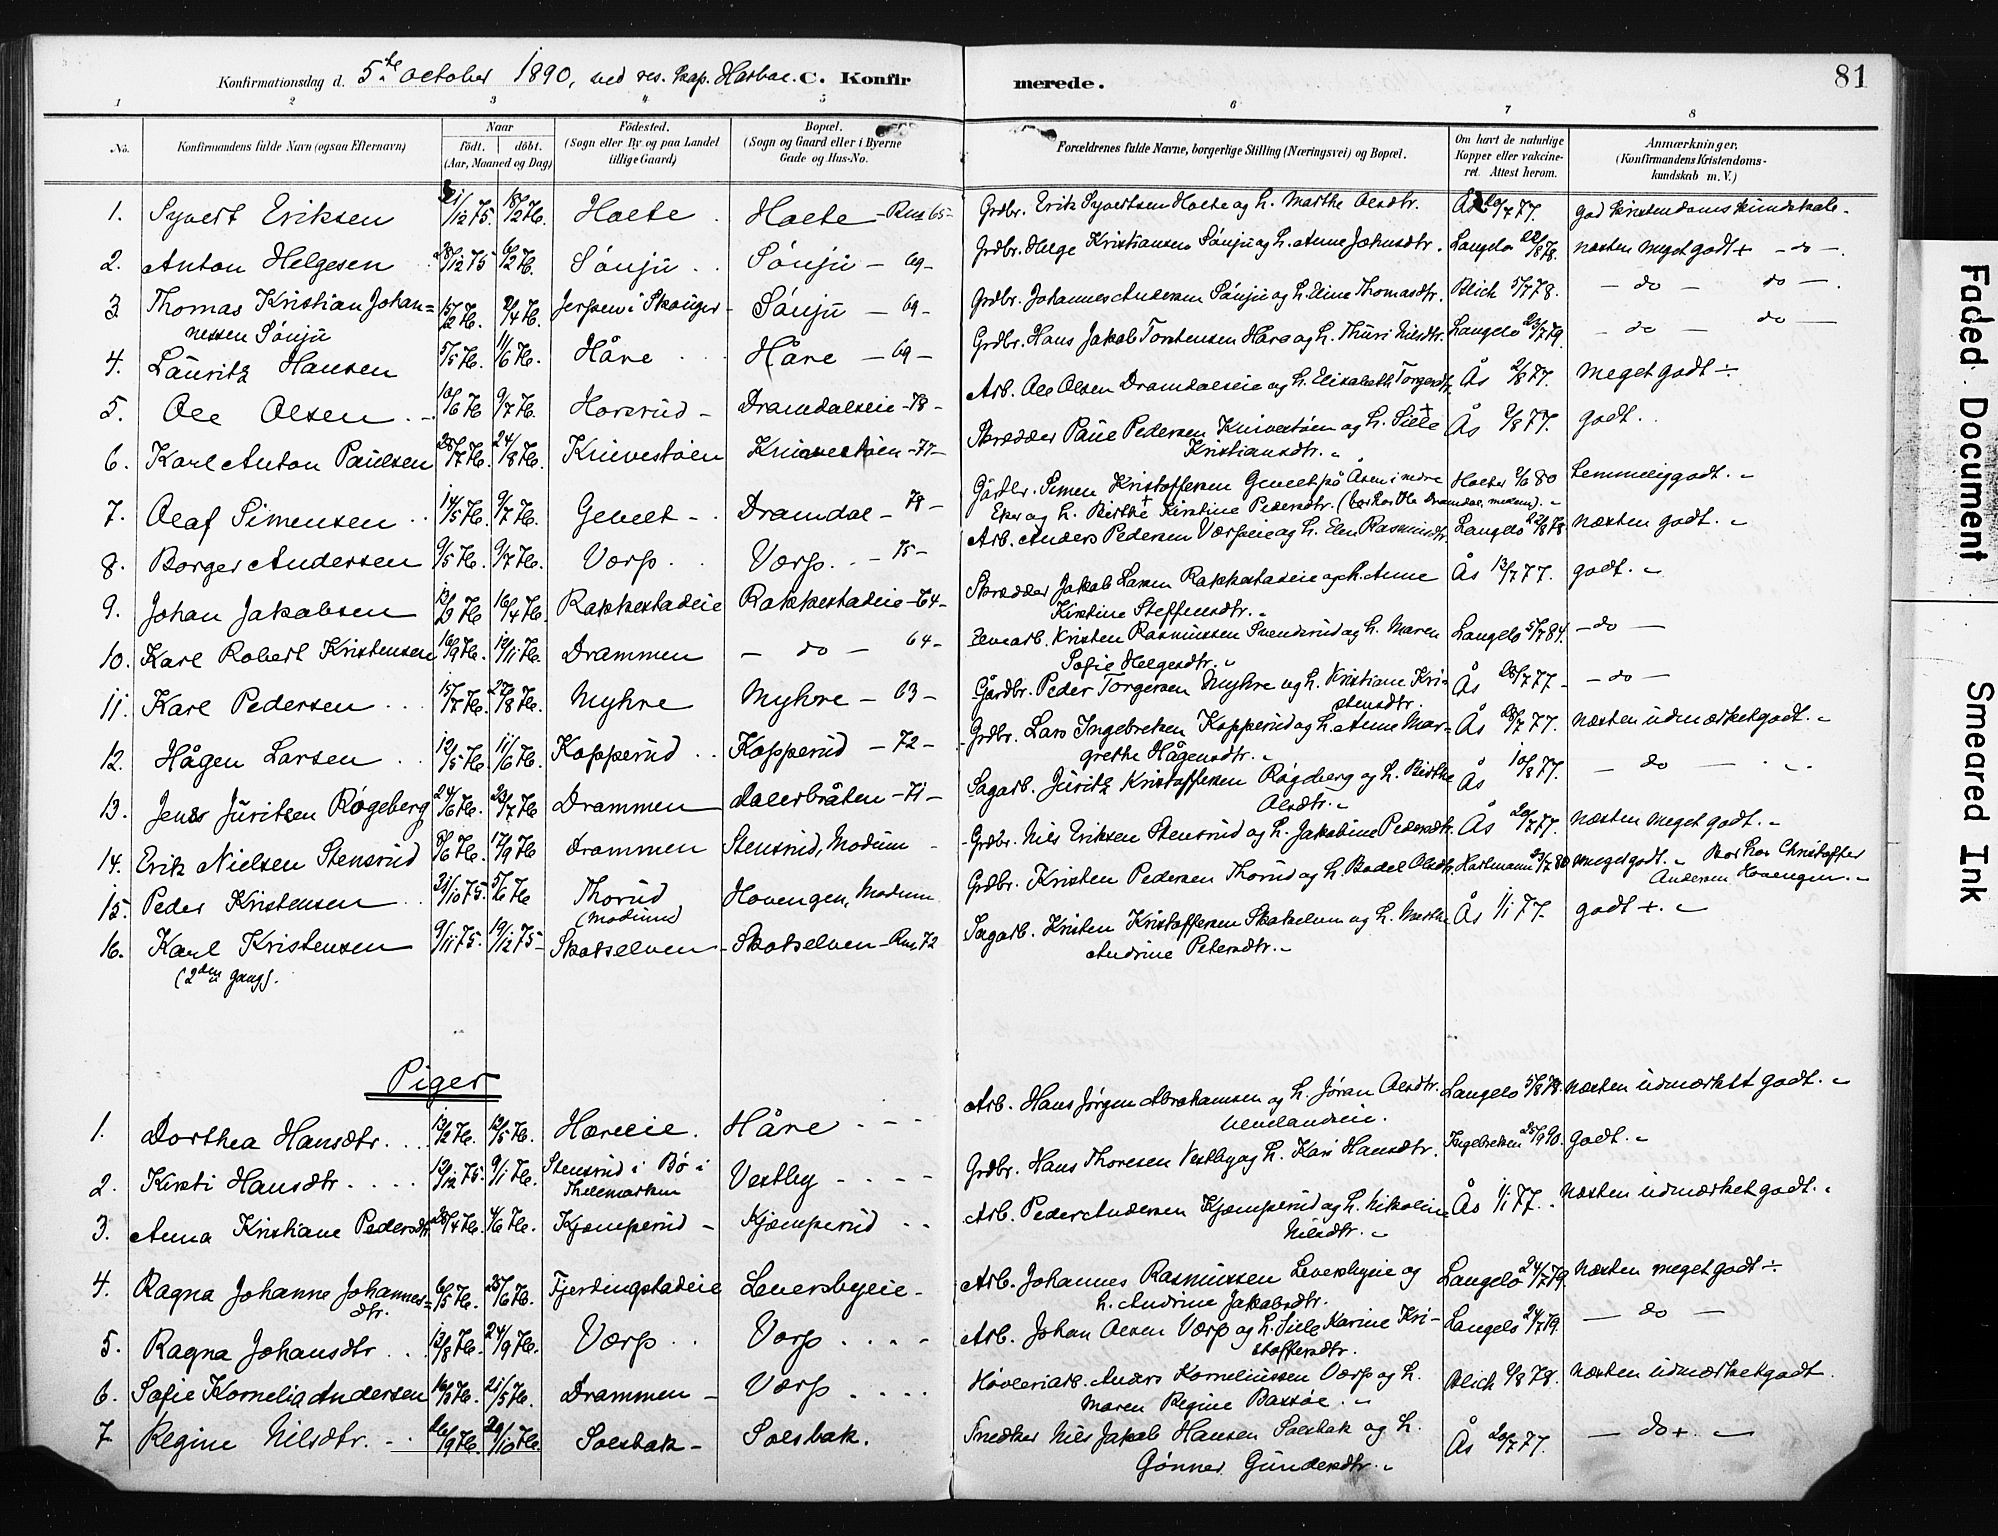 Konfirmationsdag d. 5te October 1890, ved res. kap. Harboe. C. Konfir merede. 81
1 2 3 4 5 6 7 8
No. Konfirmandens fulde Navn (ogsaa Efternavn) Naar født. døbt. (Aar, Maaned og Dag) Fødested. (Sogn eller By og paa Landet tillige Gaard) Bopæl. (Sogn og Gaard eller i Byerne Gade og Hus-No. Forældrenes fulde Navne, borgerlige Stilling (Næringsvei) og Bopæl. Om havt de naturlige Kopper eller vakcineret. Attest herom. Anmærkninger. (Konfirmandens Kristendomskundskab m. V.)
1. Syvert Eriksen 21/12 75. 13/2 76. Holte Holte – Rus 65 – Grdbr. Erik Syvertsen Holte og h. Marthe Olsdtr. Ås 20/7 77. god kristendomskundskab.
2. Anton Helgesen 28/12 75 6/2 76. Sønju Sønju – 69 – Grdbr. Helge Kristiansen Sønju og h. Anne Johnsdtr. Langelo 22/8 78. næsten meget godt + – do –
3 Thomas Kristian Johan=
nessen Sønju 15/2 76. 2/4 76. Jerpen i Skouger Sønju – 69 – Grdbr. Johannes Andersen Sønju og h. Eline Thomasdtr. Blich 5/7 78. – do – do –
4. Lauritz Hansen 5/5 76. 11/6 76. Håre Håre – 69 – Grdbr. Hans Jakob Torstensen Håre og h. Thuri Nilsdtr. Langelo 23/7 79. – do – do –
5. Ole Olsen 10/6 76 9/7 76. Horsrud – Dramdalseie – 78 – Arb. Ole Olsen Dramdalseie og h. Elisabeth Torgersdtr. Ås 2/8 77. meget godt ÷
6. Karl Anton Paulsen 25/7 76. 24/8 76. Knivestøen Knivestøen – 77 – Skrædder Paul Pedersen Knivestøen og h. Sille
Kristiansdtr. Ås 2/8 77. godt.
7. Olaf Simensen 14/5 76. 9/7 76. Gevelt – Dramdal – 78 – Gårdbr. Simen Kristoffersen Gevelt på Åsen i nedre
Eker og h. Birthe Kirstine Pedersdtr. Holter 2/6 80 temmelig godt.
8. Borger Andersen 9/5 76. 9/7 76. Vorp Vorp. – 75 – Arb. Anders Pedersen Værpeie og h. Elen Rasmusdtr. Langelo 22/8 78 næsten godt.
9. Johan Jakobsen 13/2 76. 16/4 76. Rakkestadeie Rakkestadeie – 64 – Skrædder Jakob Larsen Rakkestadeie og h. Anne
Kirstine Steffensdtr. Ås 13/7 77. godt.
10. Karl Robert Kristensen 16/9 76. 19/11 76. Drammen – do – 64 – Elvearb. Kristen Rasmussen Svendsrud og h. Maren
Sofie Helgesdtr. Langelo 5/7 84. – do –
11. Karl Pedersen 15/7 76. 27/8 76. Myhre Myhre – 63 – Gårdbr. Peder Torgersen Myhre og h. Kristiane Kri-
stensdtr. Ås 28/7 77. – do –
12. Hågen Larsen 12/5 76. 11/6 76. Kopperud Kopperud – 72 – Grdbr. Lars Ingebretsen Kopperud og h. Anne Mar=
grethe Hågensdtr. Ås 28/7 77. næsten udmærket godt.
13. Jens Juritsen Røgeberg 24/6 76. 23/7 76 Drammen Dalerbråten – 71 – Sagarb. Juritz Kristoffersen Røgeberg og h. Birthe
Olsdtr. Ås 10/8 77. – do –
14. Erik Nielsen Stensrud 8/6 76. 17/9 76 Drammen Stensrud, Modum Grdbr. Nils Eriksen Stensrud og h. Jakobine Pedersdtr. Ås 20/7 77. næsten meget godt.
15. Peder Kristensen 31/10 75. 5/6 76 Thorud
(Modum) Hovengen, Modum Grdbr. Kristen Pedersen Thorud og h. Bodel Olsdtr. Hartmann 23/7 80 meget godt. Bor hos Christoffer
Andersen Hovengen.
16. Karl Kristensen
(2den gang). 9/11 75. 19/12 75 – Skotselven – Skotselven – Rus, 72 Sagarb. Kristen Kristoffersen Skotselven og h. Marthe
Andrine Petersdtr. Ås 1/1 77. godt +.
Piger
1. Dorthea Hansdtr. 13/2 76. 12/5 76. Horeeie. Håre Arb. Hans Jørgen Abrahamsen og h. Jøran Olsdtr. Langelo 5/8 78. næsten udmærket godt.
2. Kirsti Hansdtr. 12/12 75. 9/1 76. Stensrud i Bø i
Thelemarken Vestby Grdbr. Hans Thoresen Vestby og h. Kari Hansdtr. Ingebretsen 25/9 90. godt.
3. Anna Kristiane Pedersdtr. 28/4 76. 4/6 76. Kjæmperud – Kjæmperud Arb. Peder Andersen Kjæmperud og h. Nikoline
Nilsdtr. Ås 1/1 77. næsten udmærket godt.
4. Ragna Johanne Johannes=
dtr. 6/5 76. 25/6 76. Fjerdingstadeie Leversbyeie – Arb. Johannes Rasmussen Leversbyeie og
h. Andrine Jakobsdtr. Langelo 24/7 79. næsten meget godt ÷
5. Ragna Johansdtr 13/8 76. 24/9 76. Værp Vorp Arb. Johan Olsen Værp og h. Sille Karine Kri-
stoffersdtr. Langelo 24/7 79. – do –
6. Sofie Kornelia Andersen 16/3 76. 21/5 76. Drammen – Værp Høvleriarb. Anders Korneliussen Værp og h.
Maren Regine Bassøe. Blich 9/8 78. næsten udmærket godt.
7 Regine Nilsdtr. 26/9 76. 29/10 76. Solsbak – Solsbak. Snedker Nils Jakob Hansen Solsbak og h.
Gønner Gundersdtr. Ås 20/7 77. – do +.
Faded Document
Smeared Ink